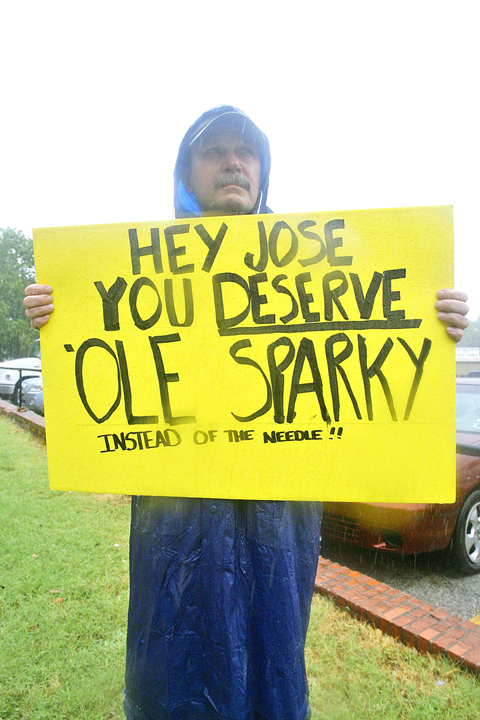 HEY JOSE
YOU DESERVE
'OLE SPARKY
INSTEAD OF THE NEEDLE!!